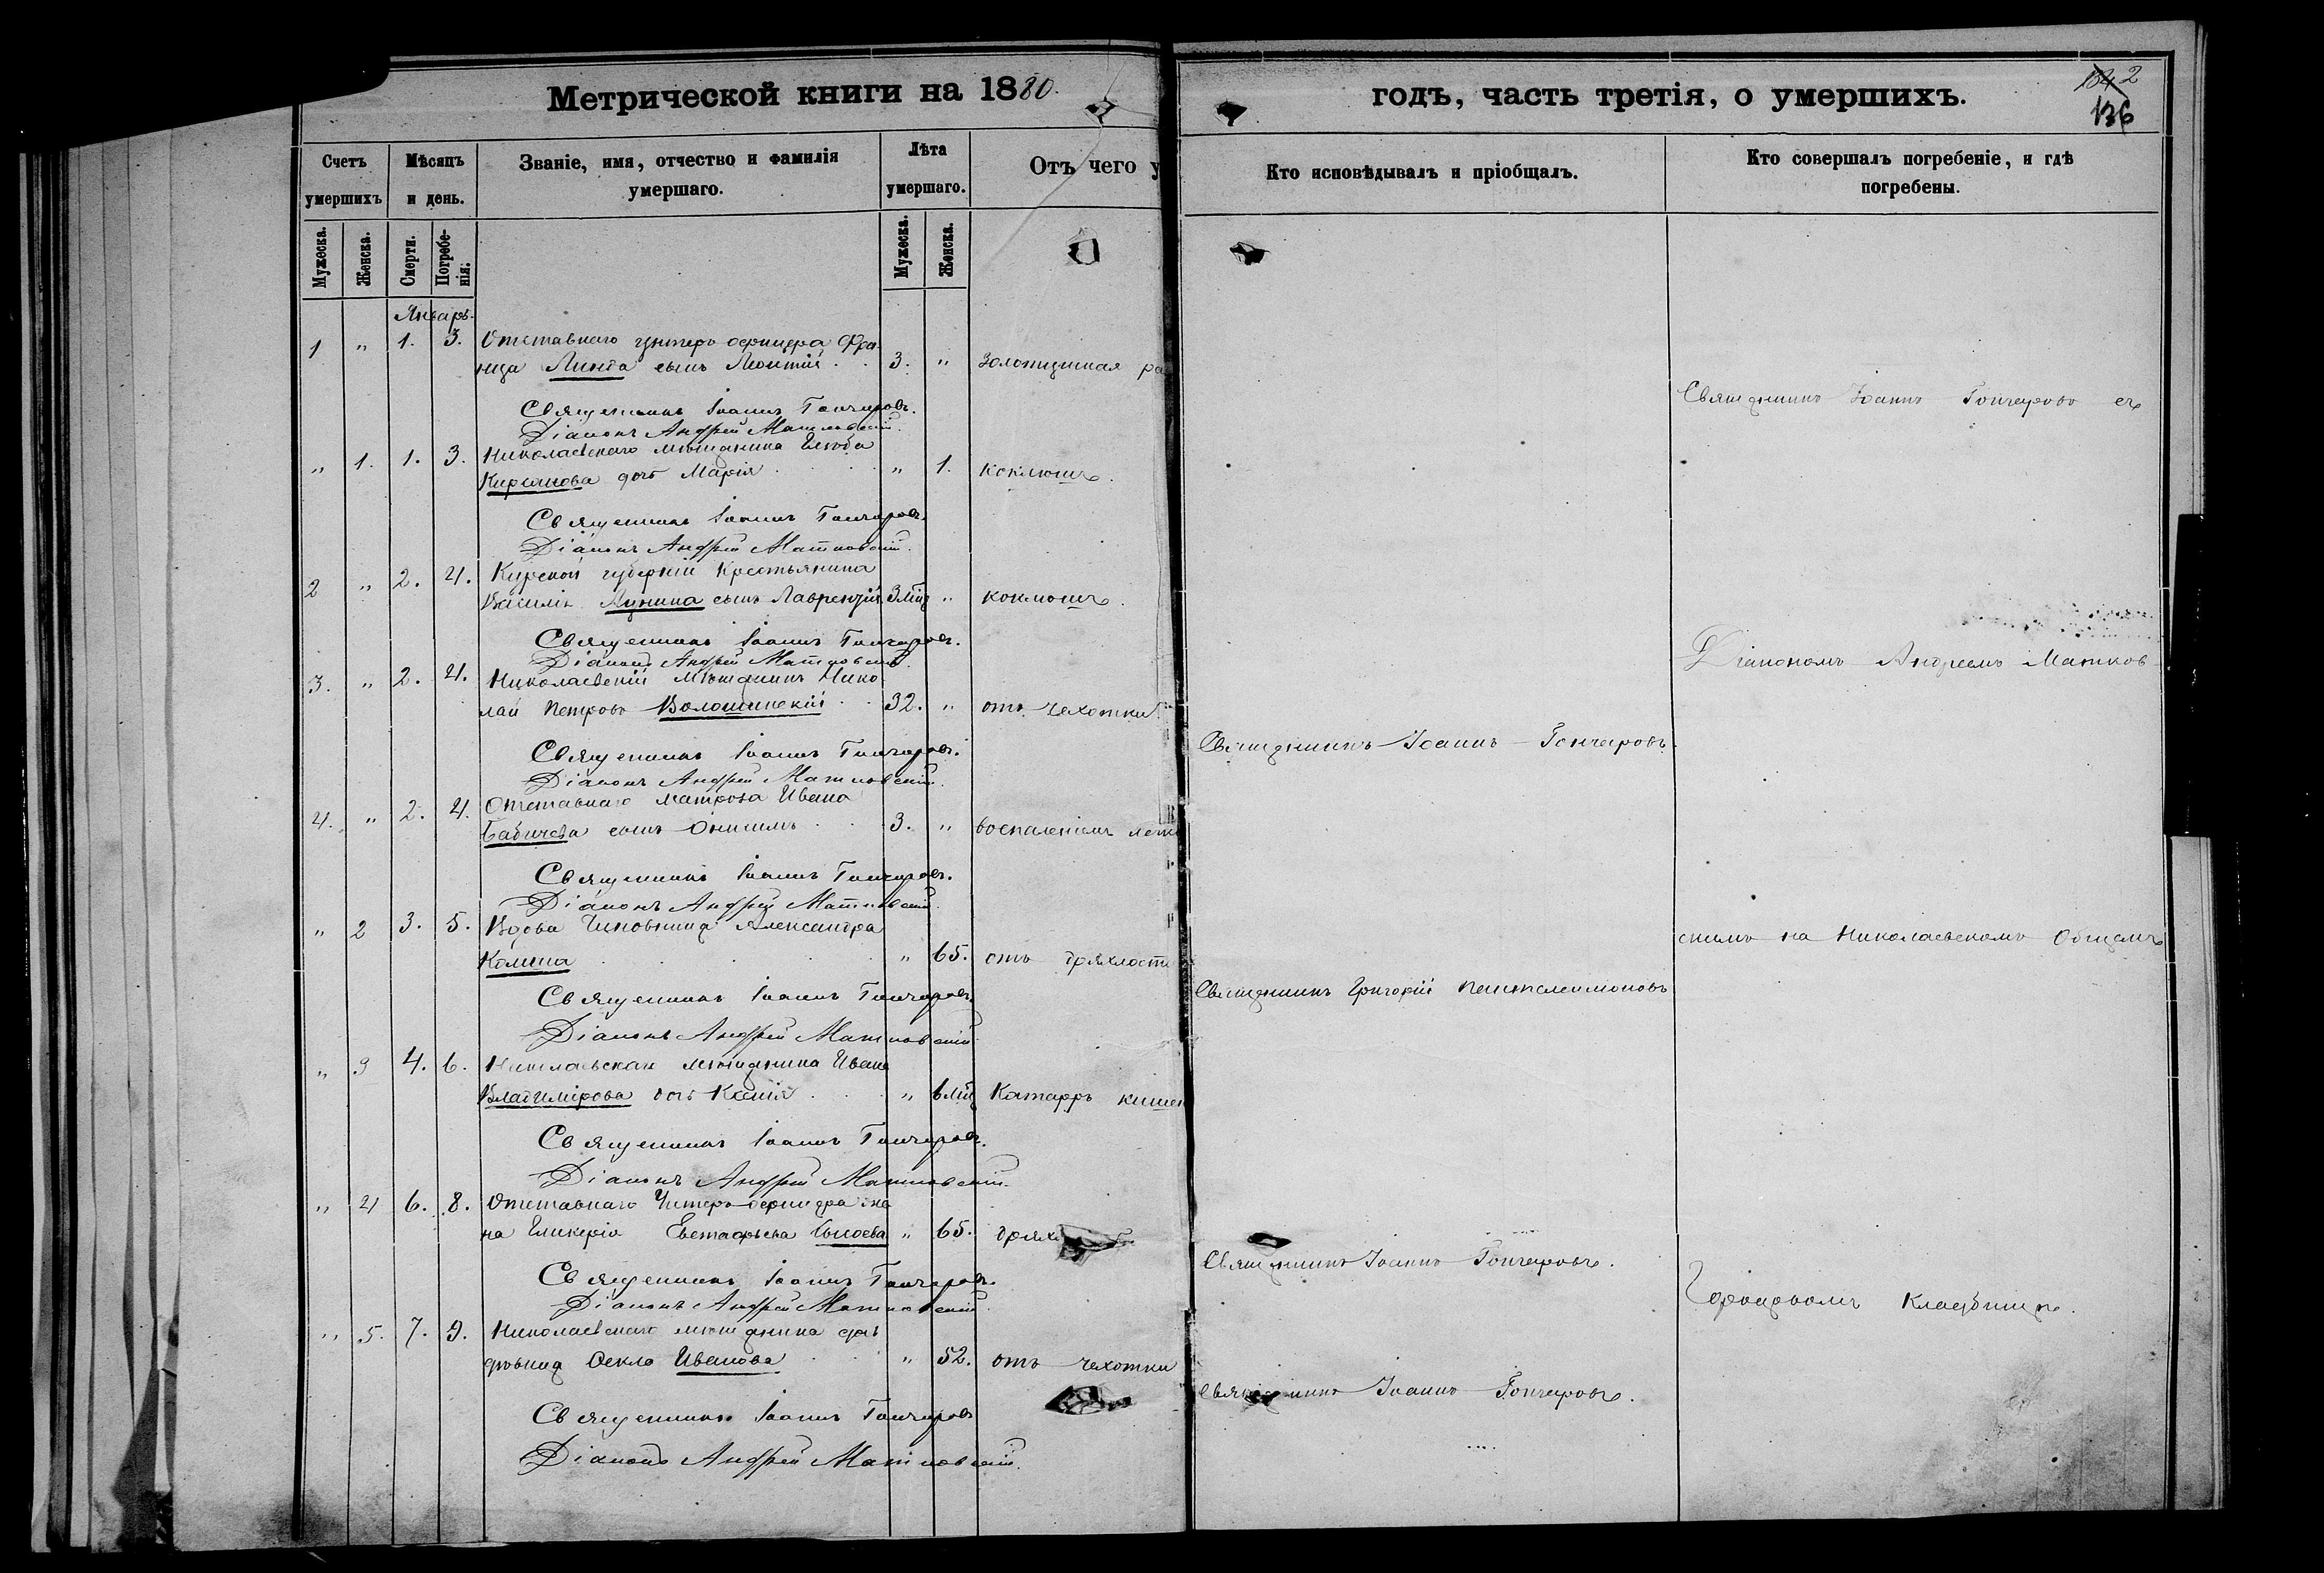 Метрической книги на 1880.
годъ, часть третія, о умершихъ.
2
136
Счетъ умершихъ
Мѣсяцъ и день.
Званіе, имя, отчество и фамилія умершаго.
Лѣта умершаго.
Отъ чего у
Кто исповѣдывалъ и пріобщалъ.
Кто совершалъ погребеніе, и гдѣ погребены.
Мужеска.
Женска.
Смерти.
Погребенія:
Мужеска.
Женска.
Январь.
1 " 1. 3. Отставнаго унтеръ офицера Фра-
нца Линда сынъ Леонтій . . 3. " Золотушная ра
Священникъ Іоаннъ Гончаровъ.
Діаконъ Андрей Матковскій.
Священникъ Іоаннъ Гончаровъ съ
" 1. 1. 3. Николаевскаго мѣщанина
Кирьянова дочь Марія . . . . " 1. коклюшъ.
Священникъ Іоаннъ Гончаровъ.
Діаконъ Андрей Матковскій.
2 " 2. 4. Курской губерніи Крестьянина
Василія Лунина сынъ Лаврентій 3 мѣц " коклюшъ.
Священникъ Іоаннъ Гончаровъ.
Діаконъ Андрей Матковскій.
Діакономъ Андреемъ Матков
3. " 2. 4. Николаевскій Мѣщанинъ Нико
лай Петровъ Волошинскій . . 32. " отъ чахотки
Священникъ Іоаннъ Гончаровъ.
Священникъ Іоаннъ Гончаровъ.
Діаконъ Андрей Матковскій.
4. " 2. 4. Отставнаго матроса Ивана
Бабичева сынъ Онисимъ . . 3. " воспаленіемъ легк
Священникъ Іоаннъ Гончаровъ.
Діаконъ Андрей Матковскій.
" 2 3. 5. Вдова Чиновница Александра
" 65. отъ дряхлости
скимъ на Николаевскомъ Общемъ
Священникъ Іоаннъ Гончаровъ
Священникъ Григорій Пантелеимоновъ
Діаконъ Андрей Матковскій
" 3 4. 6. мѣщанина Ивана
Владимірова дочь Ксенія . . . " 6 мѣц Катарръ кишеч
Священникъ Іоаннъ Гончаровъ.
Діаконъ Андрей Матковскій.
" 4 6. 8. Отставнаго Унтеръ-офицера же
на Гликерія Евстафьева " 65. дрях
Священникъ Іоаннъ Гончаровъ.
Священникъ Іоаннъ Гончаровъ.
Діаконъ Андрей Матковскій
Городскомъ Кладбищѣ.
" 5. 7. 9. Николаевскаго мѣщанина
Ѳекла Иванова . . " 52. отъ чахотки
Священникъ Іоаннъ Гончаровъ.
Священникъ Іоаннъ Гончаровъ
Діаконъ Андрей Матковскій.